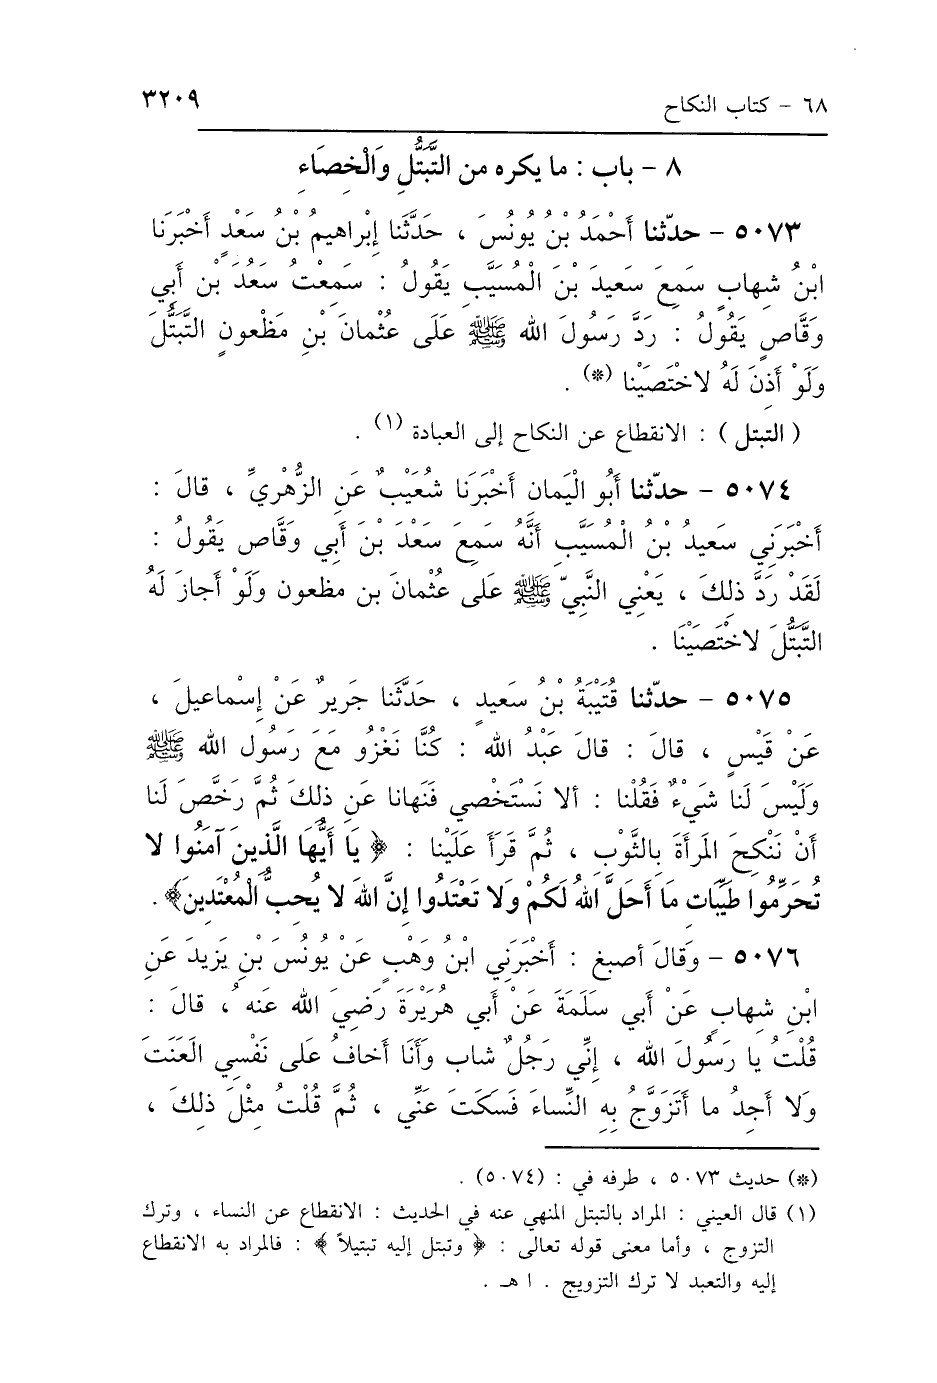 ٦٨ - كتاب النكاح ٣٢٠٩
٨ - باب : ما يكره من التَّبَتُّلِ وَالْخِصَاءِ
٥٠٧٣ - حدّثنا أَحْمَدُ بْنُ يُونُسَ ، حَدَّثَنا إِبْراهيمُ بْنُ سَعْدٍ أَخْبَرَنا
ابْنُ شِهابٍ سَمِعَ سَعِيدَ بْنَ الْمُسَيَّبِ يَقُولُ : سَمِعْتُ سَعْدَ بْنَ أَبِي
وَقَّاصٍ يَقُولُ : رَدَّ رَسُولُ الله ﷺ عَلَى عُثْمانَ بْنِ مَظْعونٍ التَّبَتُّلَ
وَلَوْ أَذِنَ لَهُ لاخْتَصَيْنا (*) .
( التبتل ) : الانقطاع عن النكاح إلى العبادة (١) .
٥٠٧٤ - حدّثنا أَبُو الْيَمان أَخْبَرَنا شُعَيْبٌ عَنِ الزُّهْرِيِّ ، قالَ :
أَخْبَرَنِي سَعِيدُ بْنُ الْمُسَيَّبِ أَنَّهُ سَمِعَ سَعْدَ بْنَ أَبي وَقَّاص يَقُولُ :
لَقَدْ رَدَّ ذلِكَ ، يَعْنِي النَّبيّ ﷺ عَلى عُثْمانَ بن مظعون وَلَوْ أَجازَ لَهُ
التَّبَتُّلَ لاخْتَصَيْنَا .
٥٠٧٥ - حدّثنا قُتَيْبَةُ بْنُ سَعيدٍ ، حَدَّثَنا جَريرٌ عَنْ إِسْماعيلَ ،
عَنْ قَيْسٍ ، قالَ : قالَ عَبْدُ الله : كُنَّا نَغْزُو مَعَ رَسُول الله ﷺ
وَلَيْسَ لَنا شَيْءٌ فَقُلْنا : أَلا نَسْتَخْصي فَنَهانا عَن ذلِكَ ثُمَّ رَخَّصَ لَنا
أَنْ نَنْكِحَ المَرأَةَ بِالثَّوْبِ ، ثُمَّ قَرَأَ عَلَيْنا : ﴿ يَا أَيُّهَا الَّذِينَ آمَنُوا لا
تُحَرِّمُوا طَيِّبَاتِ مَا أَحَلَّ اللهُ لَكُمْ وَلا تَعْتَدُوا إِنَّ اللهَ لا يُحِبُّ الْمُعْتَدِينَ﴾ .
٥٠٧٦ - وَقَالَ أصبغ : أَخْبَرَنِي ابْنُ وَهْبٍ عَنْ يُونُسَ بْنِ يَزِيدَ عَنِ
ابْنِ شِهابٍ عَنْ أَبي سَلَمَةَ عَنْ أَبي هُرَيْرَةَ رَضِيَ الله عَنهُ ، قالَ :
قُلْتُ يا رَسُولَ الله ، إِنِّي رَجُلٌ شاب وَأَنا أَخافُ عَلى نَفْسِي الْعَنَتَ
وَلا أَجِدُ ما أَتَزَوَّجُ بِهِ النِّساءَ فَسَكَتَ عَنِّي ، ثُمَّ قُلْتُ مِثْلَ ذلِكَ ،
(*) حديث ٥٠٧٣ ، طرفه في : (٥٠٧٤) .
(١) قال العيني : المراد بالتبتل المنهي عنه في الحديث : الانقطاع عن النساء ، وترك
التزوج ، وأما معنى قوله تعالى : ﴿ وتبتل إليه تبتيلاً ﴾ : فالمراد به الانقطاع
إليه والتعبد لا ترك التزويج . ا هـ .